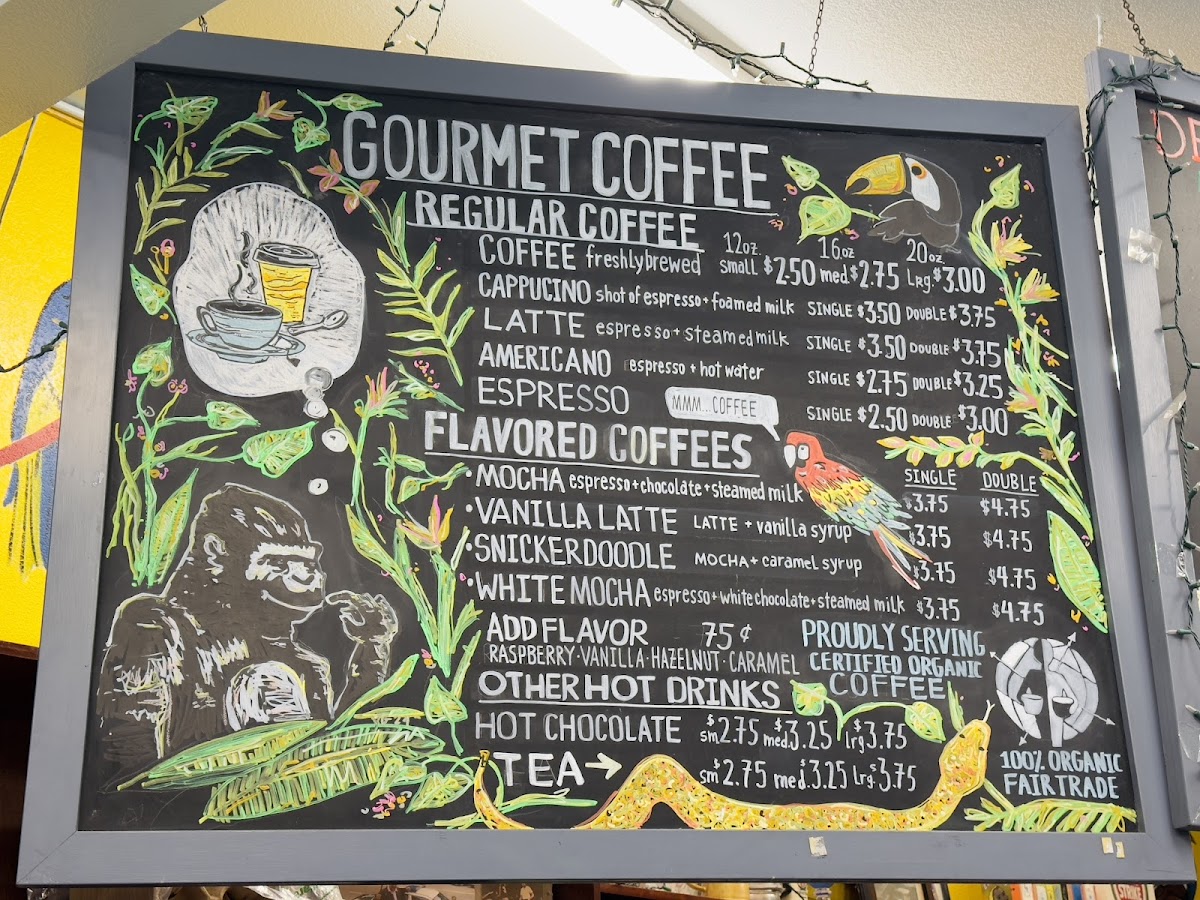 GOURMET COFFEE
REGULAR COFFEE
12oz 16oz 20oz
COFFEE freshly brewed small $2.50 med. $2.75 Lrg. $3.00
CAPPUCINO shot of espresso + foamed milk SINGLE $3.50 DOUBLE $3.75
LATTE espresso + steamed milk SINGLE $3.50 DOUBLE $3.75
AMERICANO espresso + hot water SINGLE $2.75 DOUBLE $3.25
ESPRESSO SINGLE $2.50 DOUBLE $3.00
MMM...COFFEE
FLAVORED COFFEES
SINGLE DOUBLE
• MOCHA espresso + chocolate + steamed milk $3.75 $4.75
• VANILLA LATTE LATTE + vanilla syrup $3.75 $4.75
• SNICKERDOODLE MOCHA + caramel syrup $3.75 $4.75
• WHITE MOCHA espresso + white chocolate + steamed milk $3.75 $4.75
ADD FLAVOR 75¢
RASPBERRY · VANILLA · HAZELNUT · CARAMEL
PROUDLY SERVING
CERTIFIED ORGANIC
COFFEE
OTHER HOT DRINKS
HOT CHOCOLATE sm $2.75 med. $3.25 lrg $3.75
TEA → sm $2.75 med $3.25 Lrg. $3.75
100% ORGANIC
FAIR TRADE
STRIKE